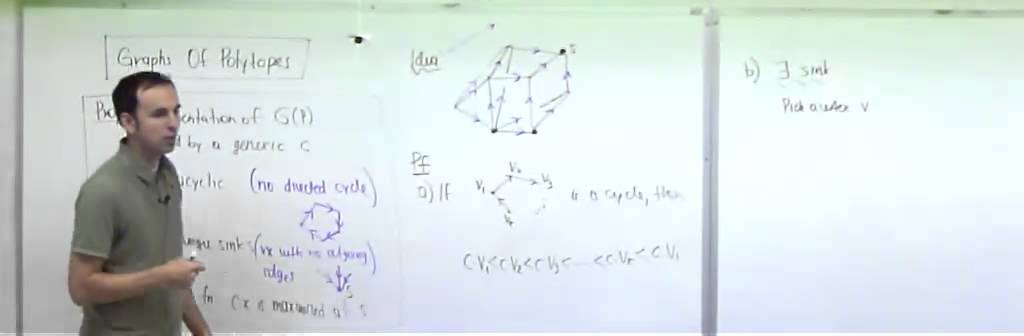 Graphs Of Polytopes
entation of G(P)
d by a generic c
cyclic (no directed cycle)
sink s (vx with no outgoing
edges)
fn cx is maximized at s
Idea
s
Pf
a) If v₁ v₂ v₃ vₖ is a cycle, then
cv₁<cv₂<cv₃<...<cvₖ<cv₁
b) ∃ sink
Pick a vertex v